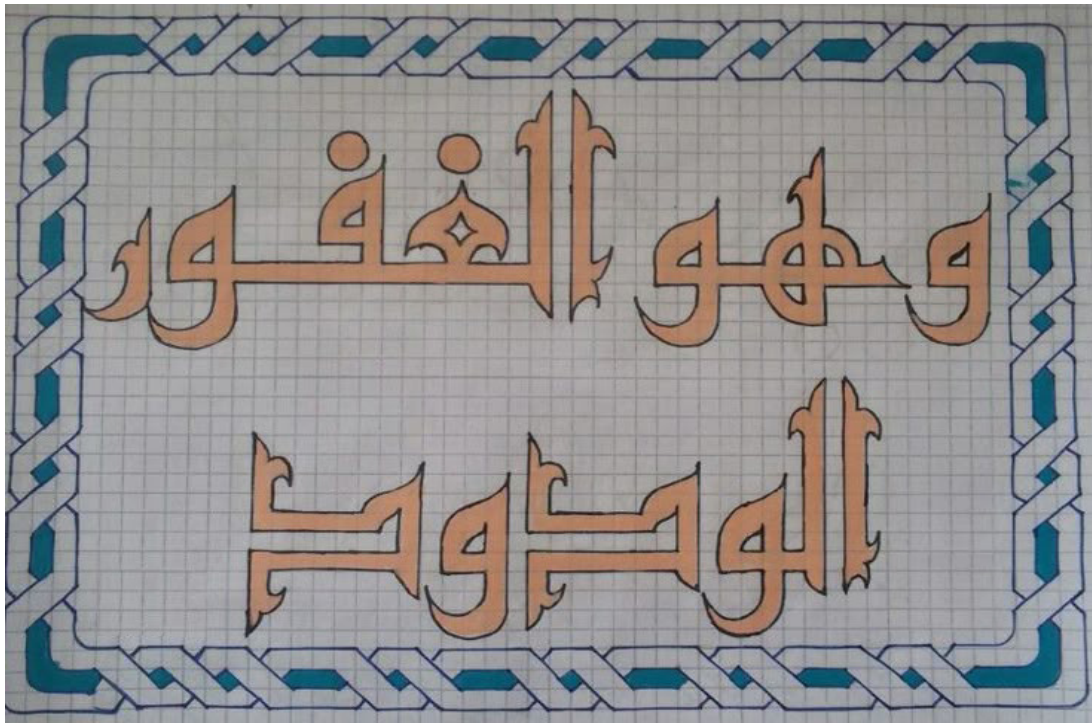 وهو الغفور
الودود